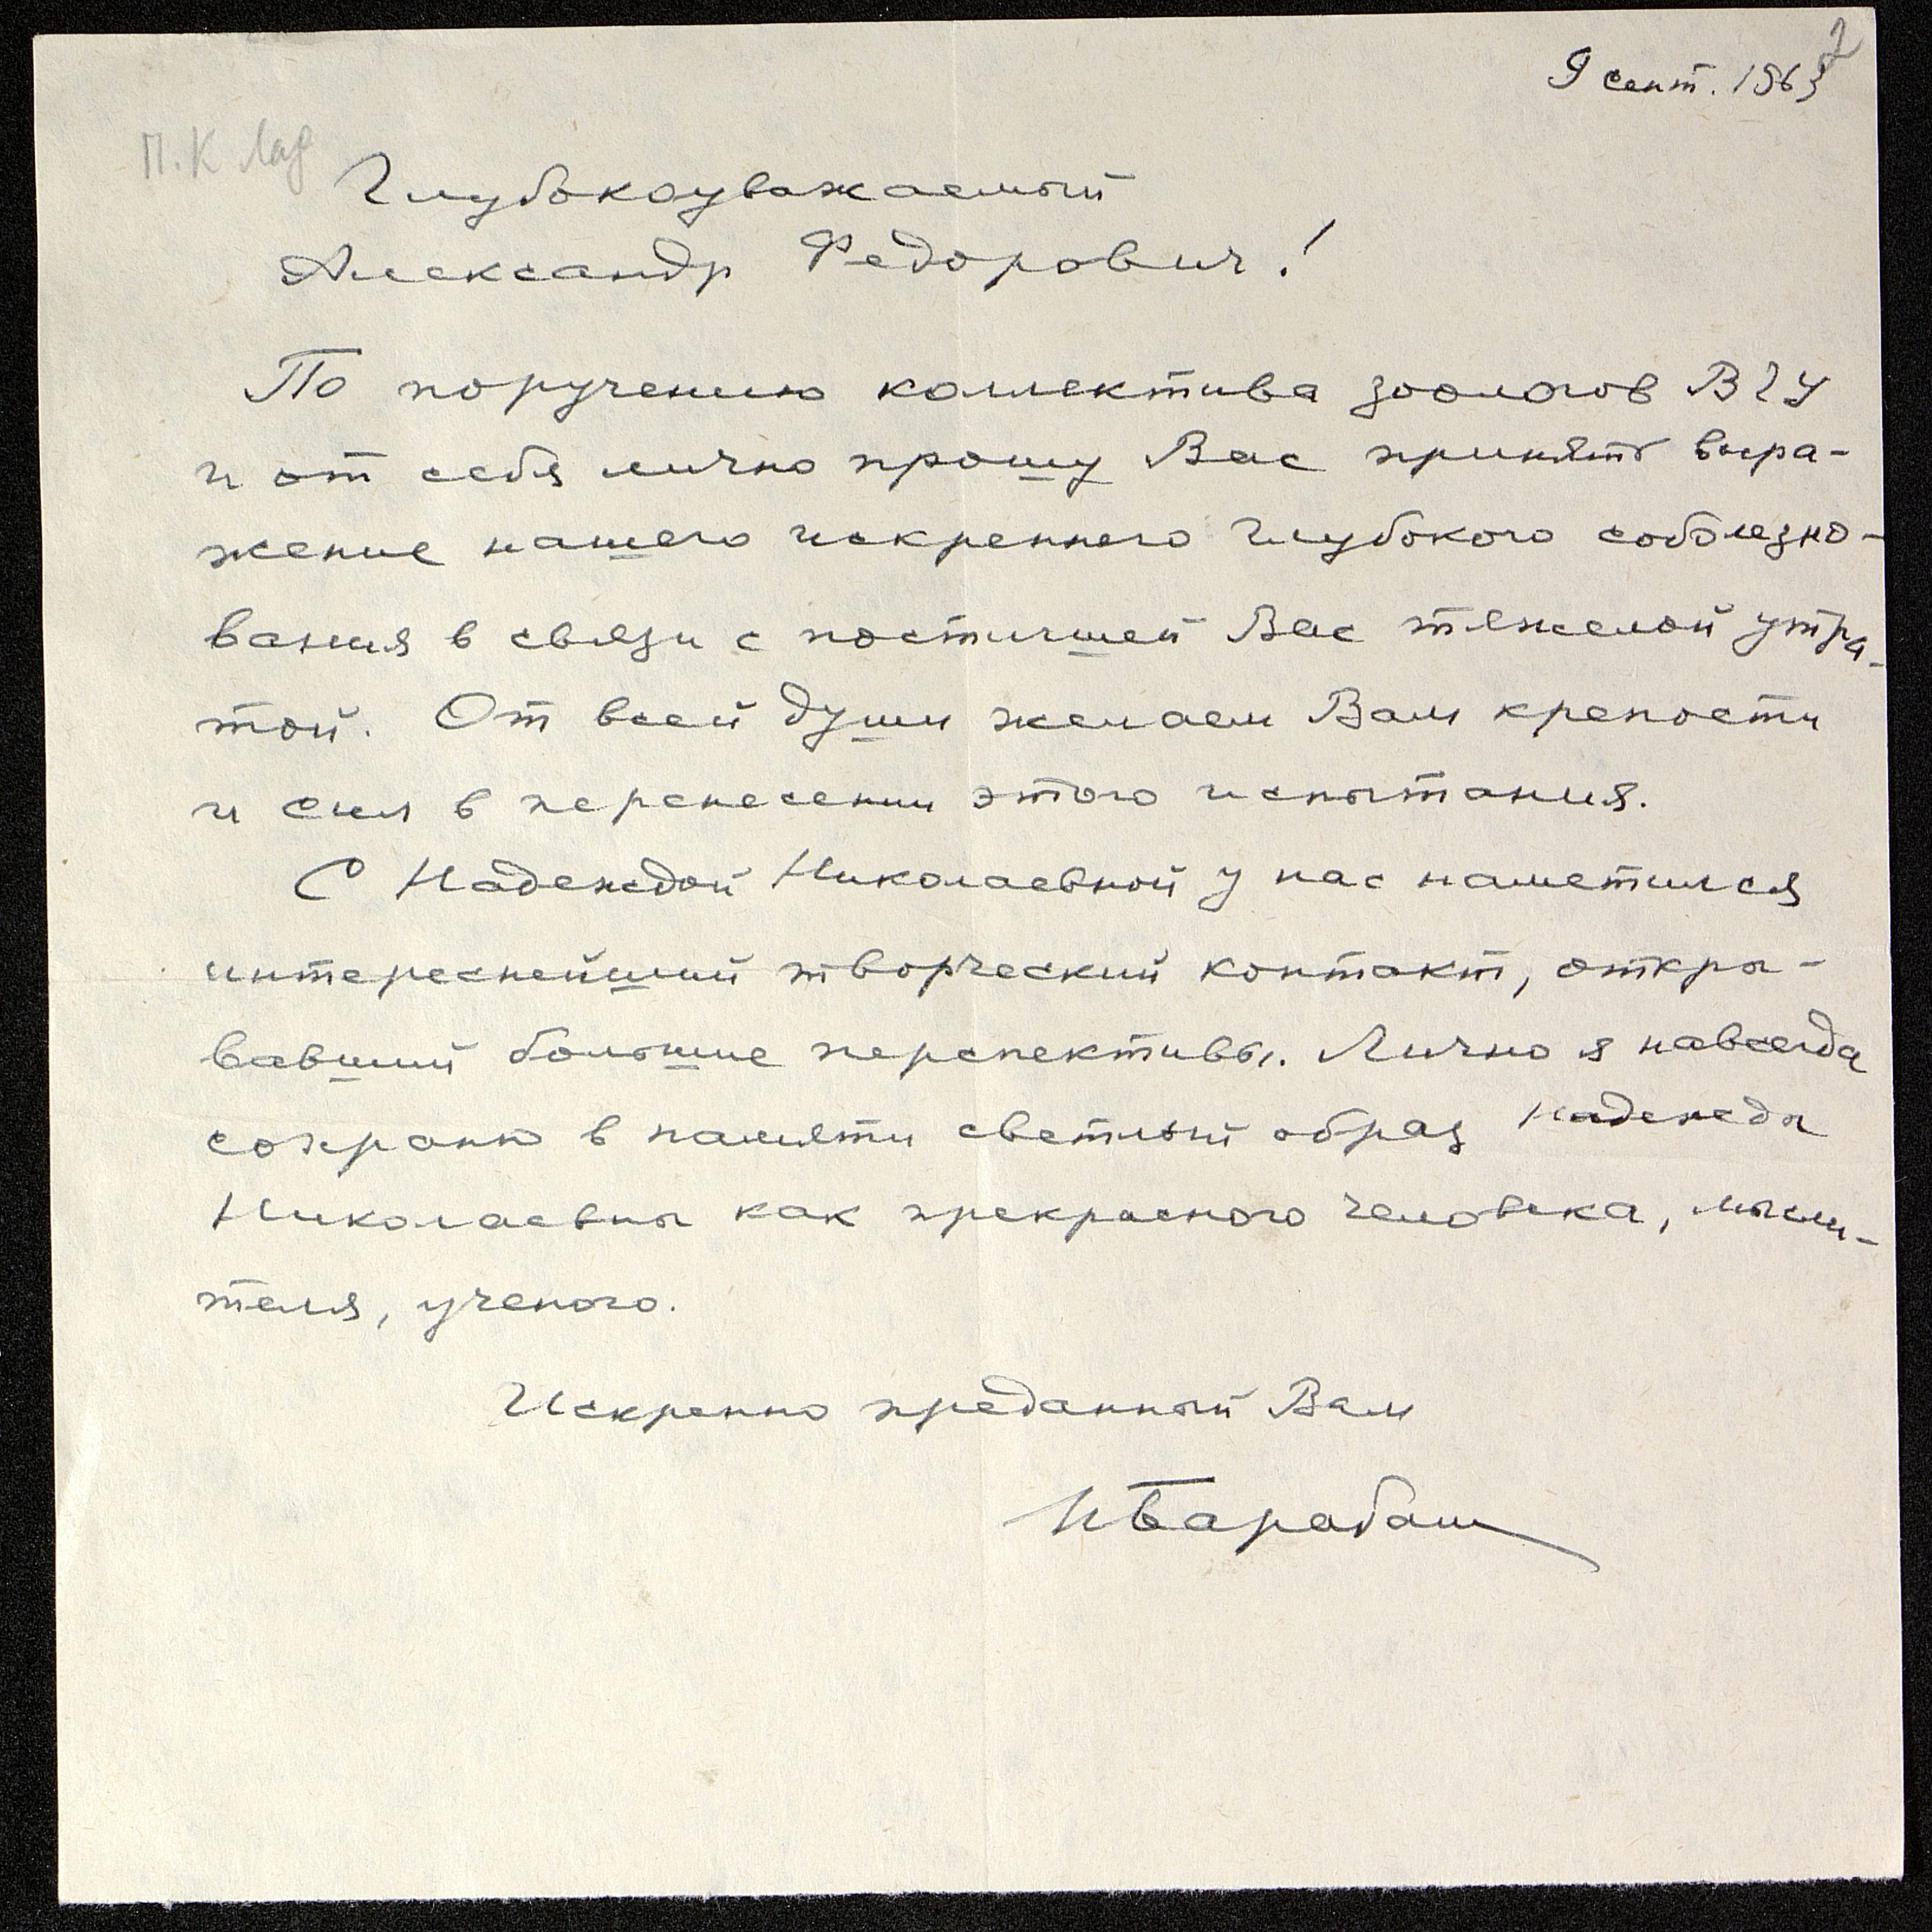 2
9 сент. 1963
П. К Лад
Глубокоуважаемый
Александр Федорович!
По поручению коллектива зоологов ВГУ
и от себя лично прошу Вас принять выра-
жение нашего искреннего глубокого соболезно-
вания в связи с постигшей Вас тяжелой утра-
той. От всей души желаем Вам крепости
и сил в перенесении этого испытания.
С Надеждой Николаевной у нас наметился
интереснейший творческий контакт, откры-
вавший большие перспективы. Лично я навсегда
сохраню в памяти светлый образ Надежды
Николаевны как прекрасного человека, мысли-
теля, ученого.
Искренно преданный Вам
ИБарабаш